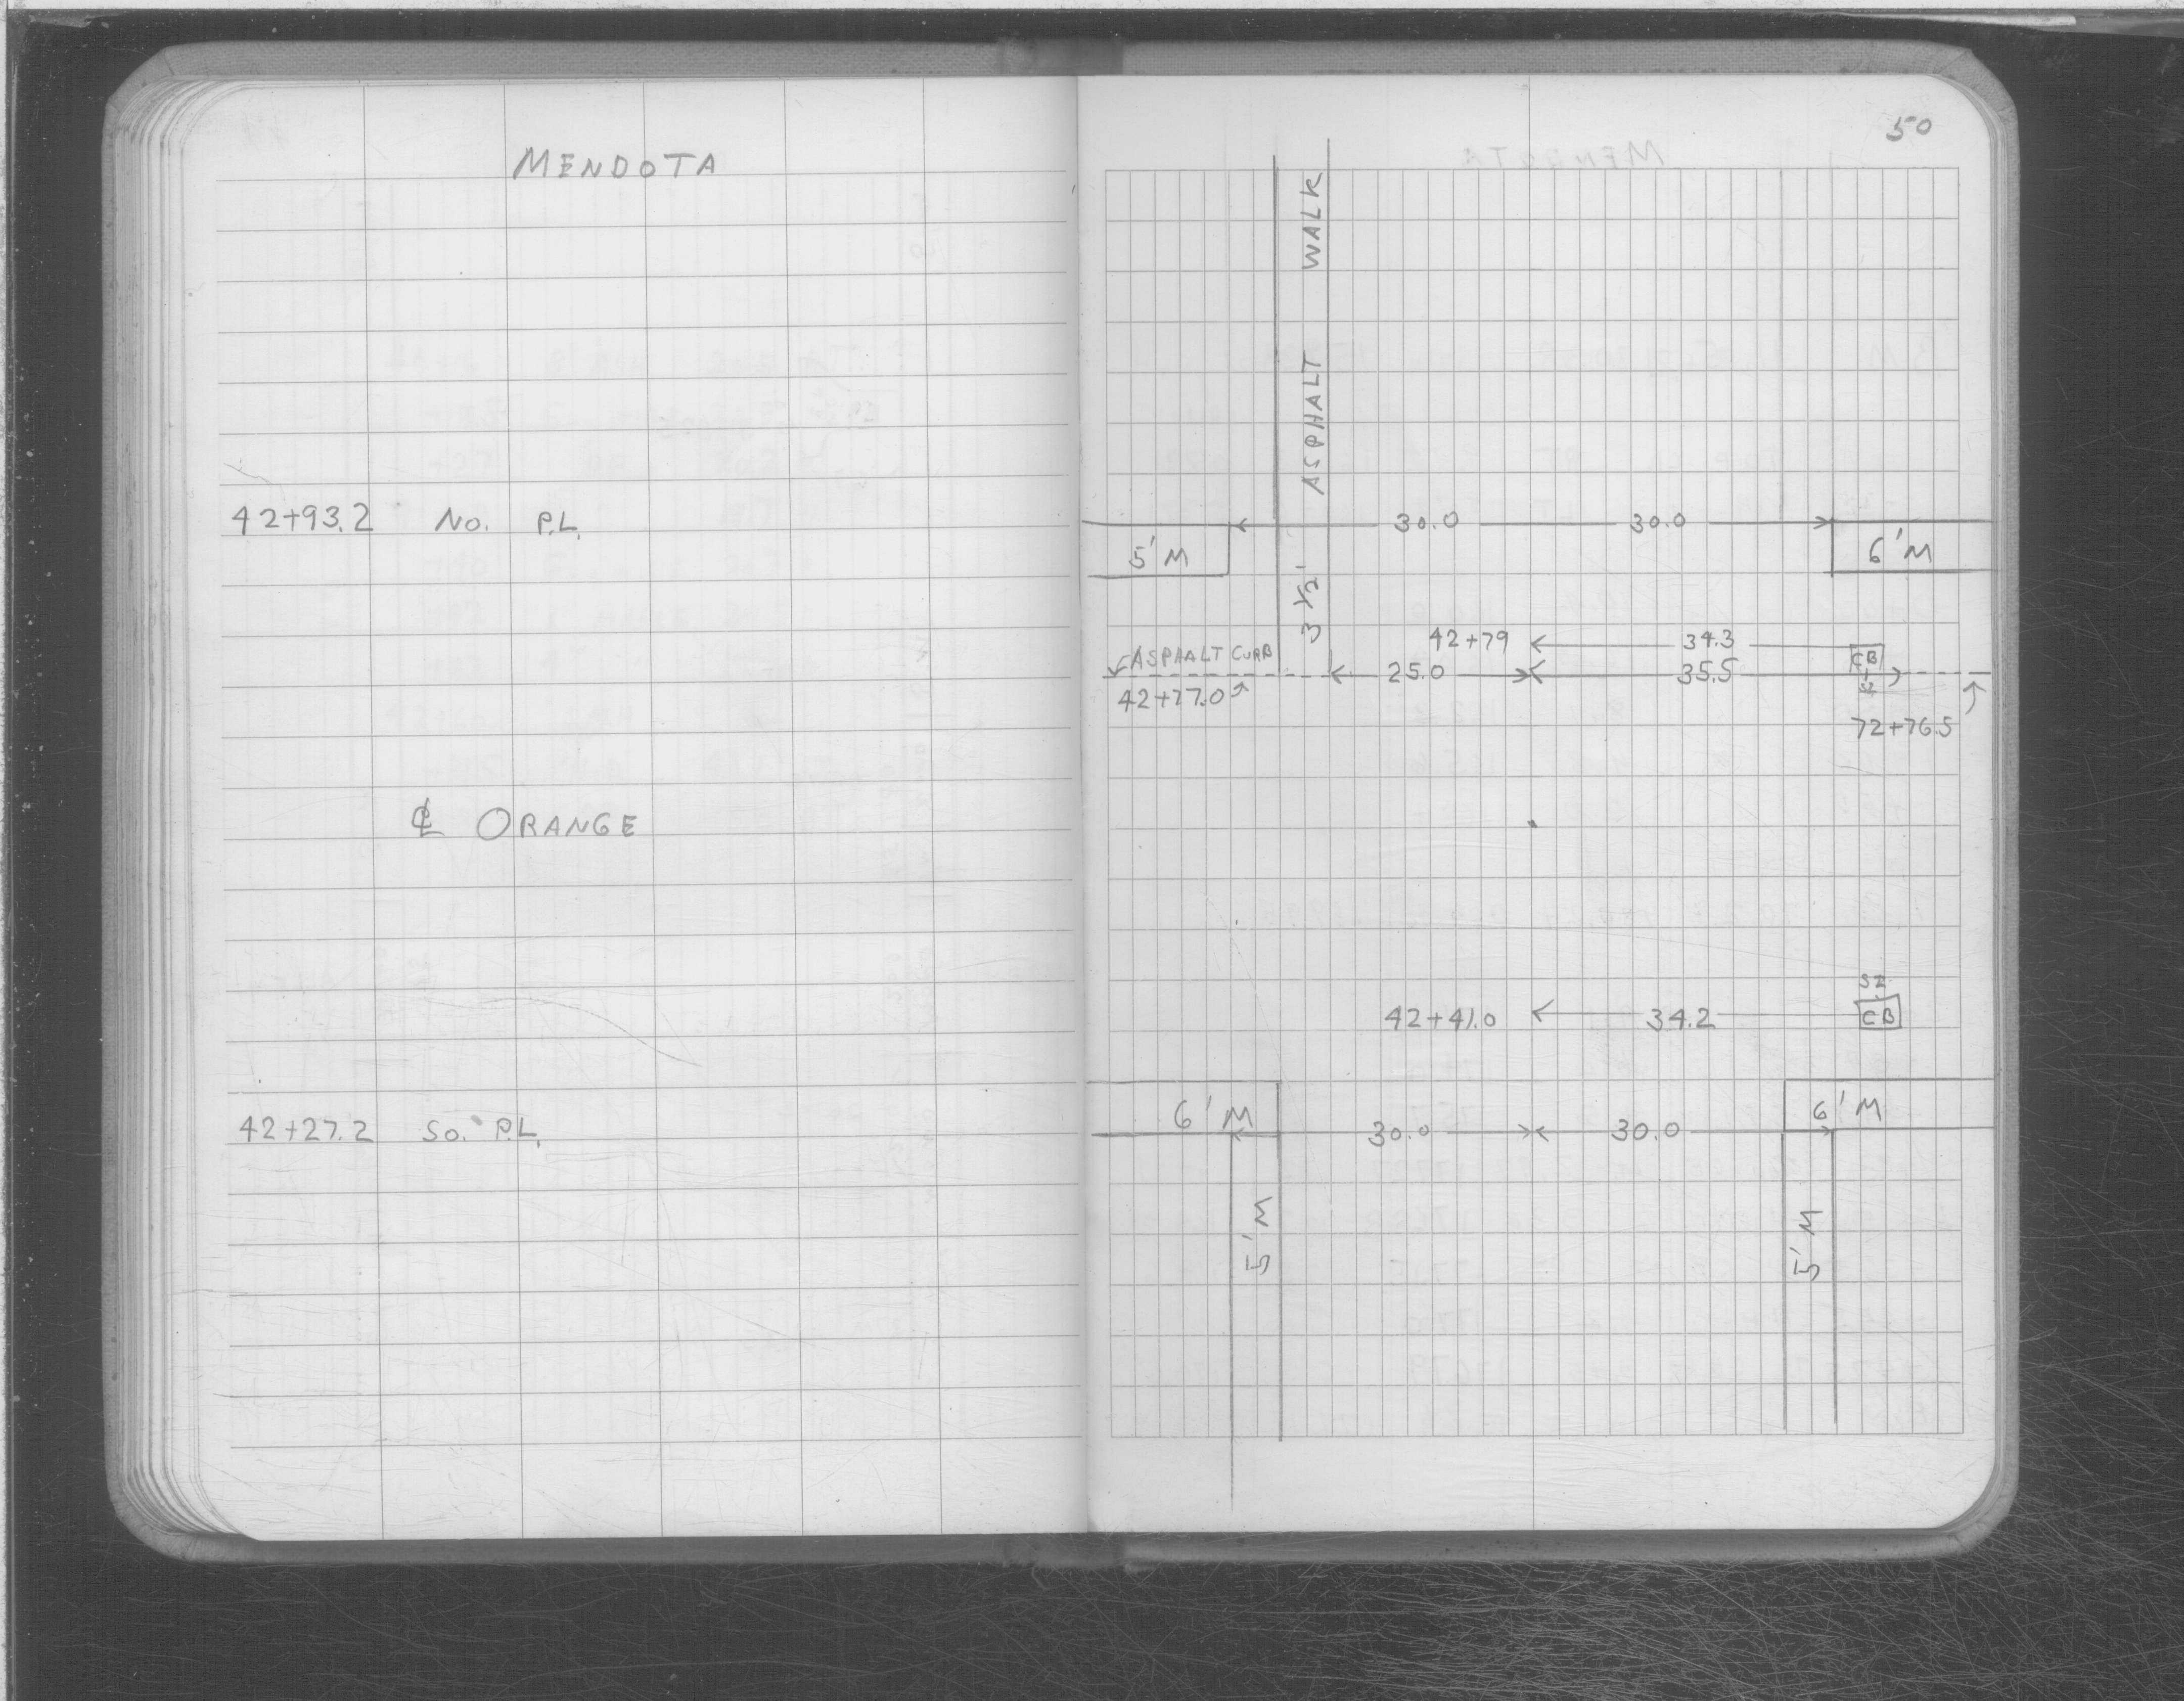 MENDOTA
42+93.2 No. P.L.
℄ ORANGE
42+27.2 So. P.L.
50
3½' ASPHALT WALK
30.0 30.0
5' M
6' M
42+79 34.3
ASPHALT CURB
25.0 35.5
CB
42+77.0
72+76.5
SI
42+41.0 34.2 CB
6' M
6' M
30.0 30.0
5' M
5' M